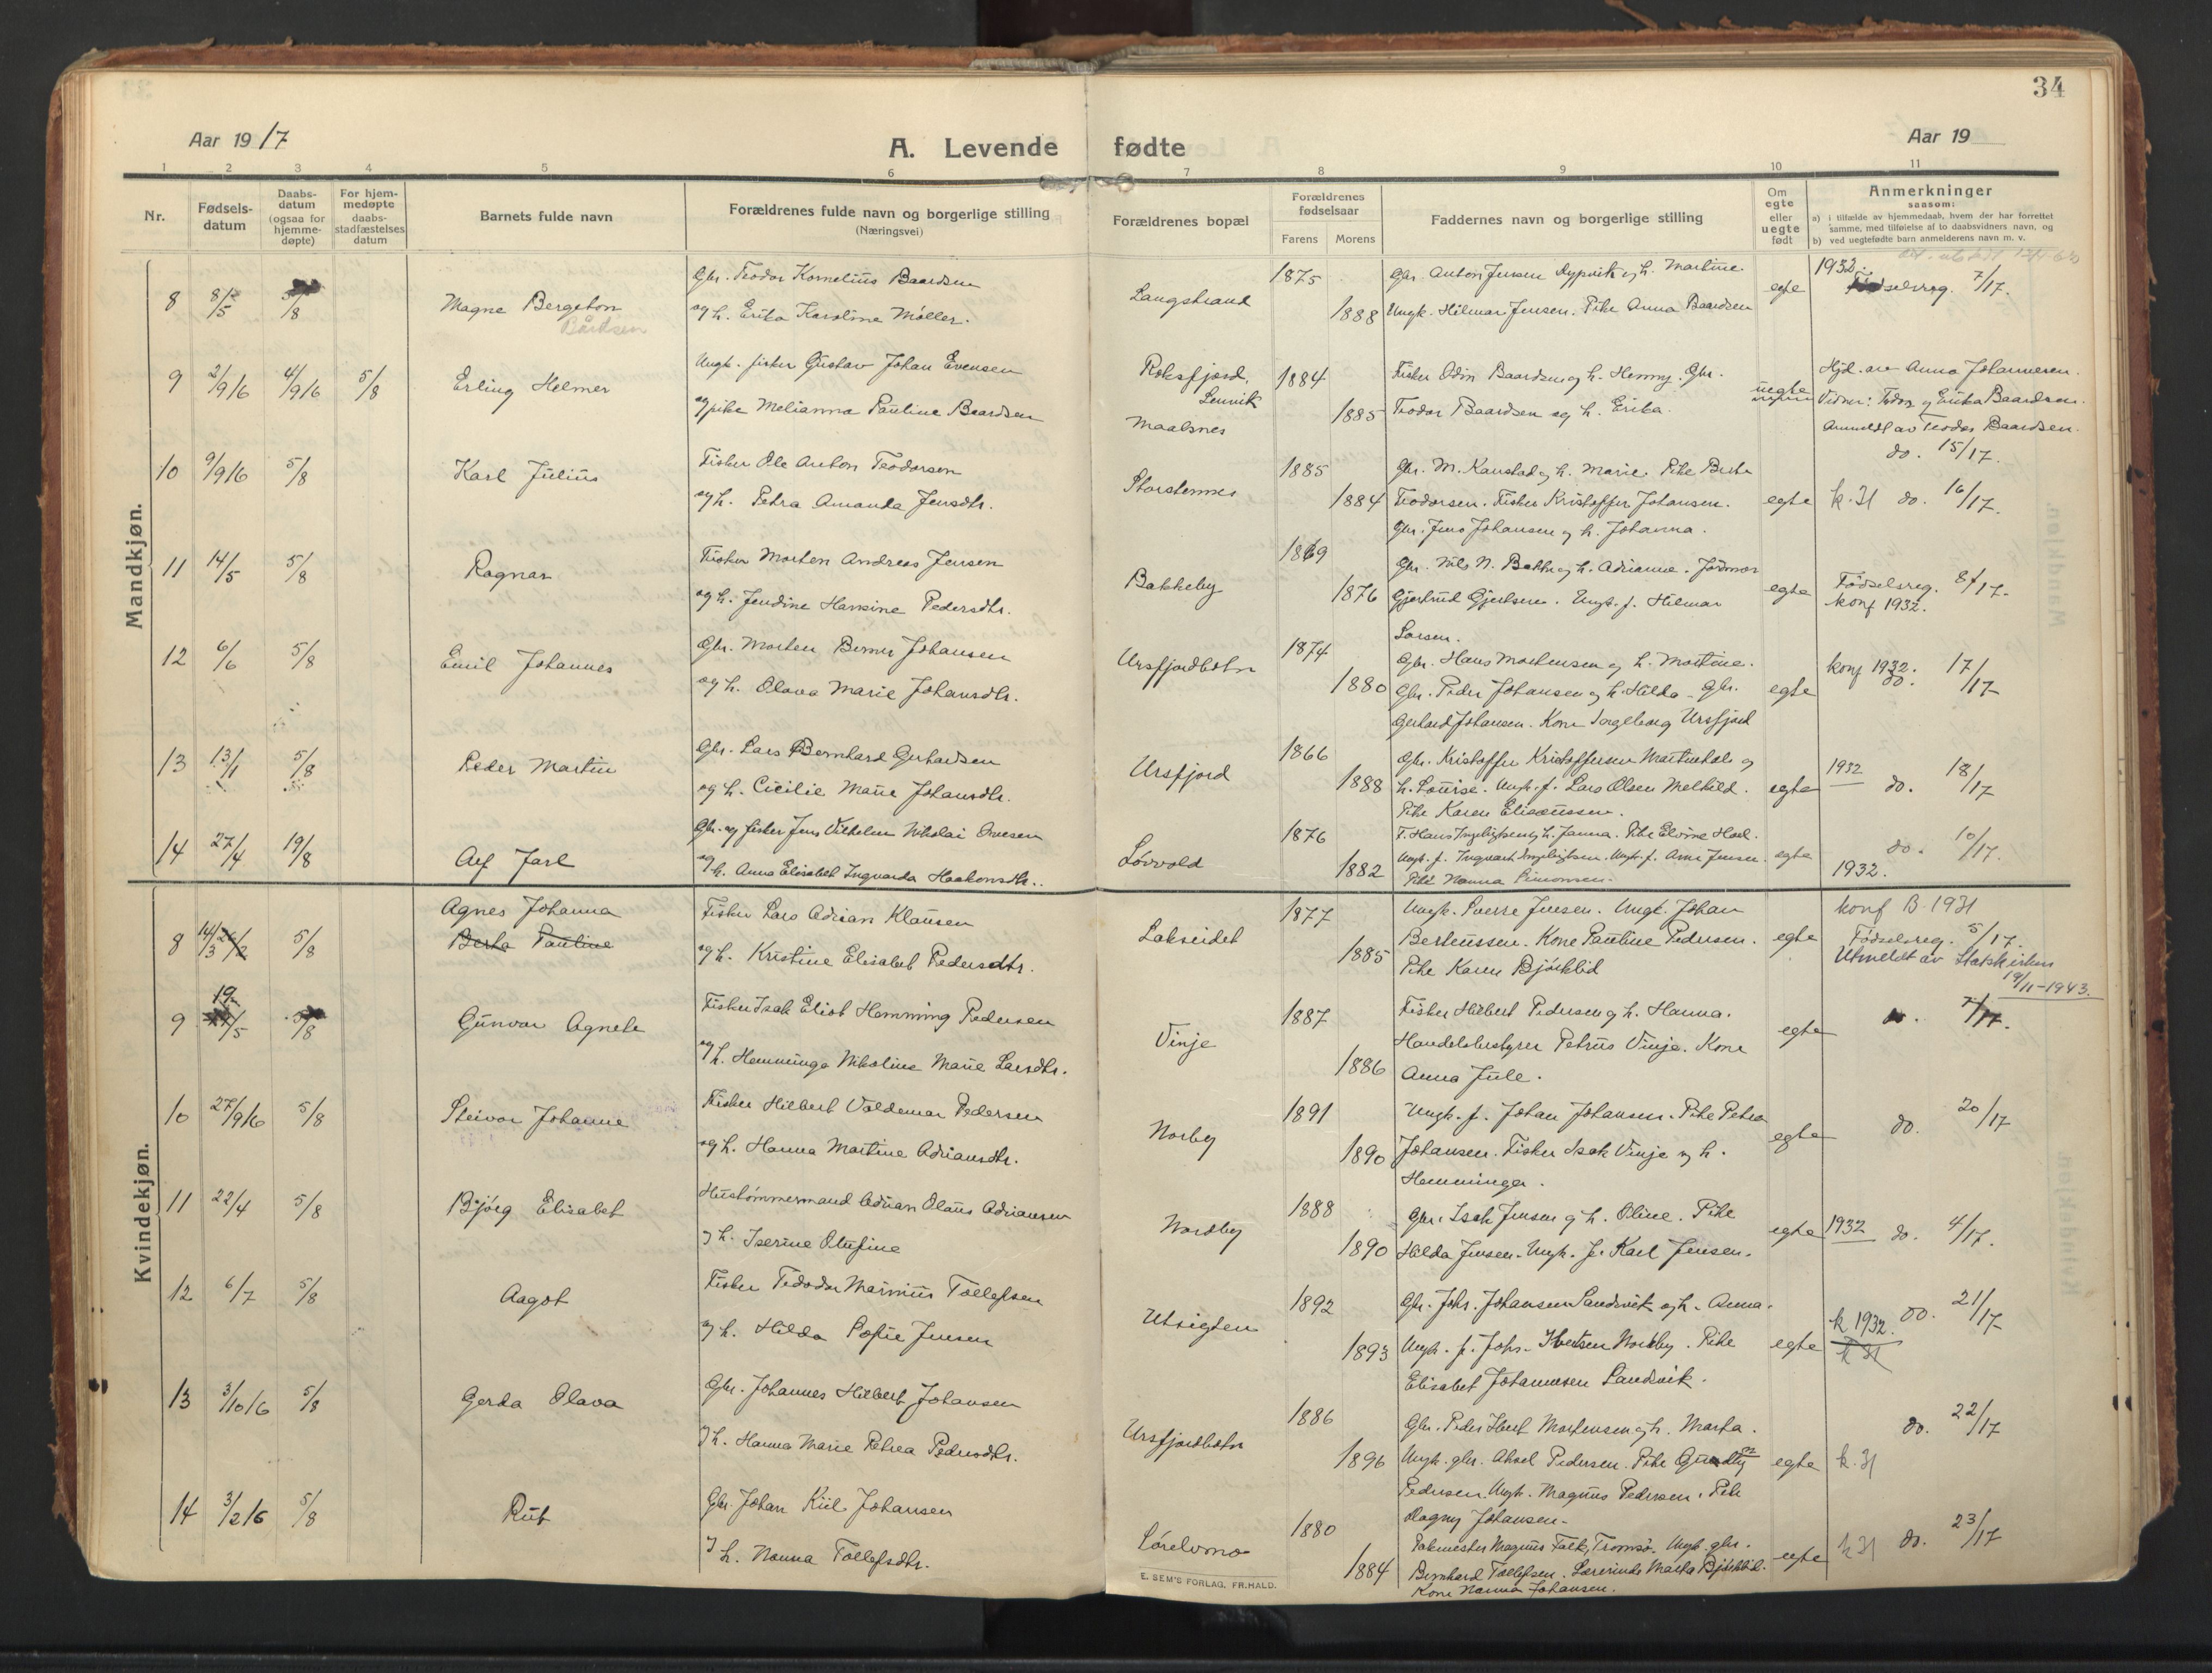 34
Aar 1917
A. Levende fødte
Aar 19
1 2 3 4 5 6 7 8 9 10 11
Nr.
Fødsels-
datum
Daabs-
datum
(ogsaa for
hjemme-
døpte)
For hjem-
medøpte
daabs-
stadfæstelses
datum
Barnets fulde navn
Forældrenes fulde navn og borgerlige stilling
(Næringsvei)
Forældrenes bopæl
Forældrenes
fødselsaar
Farens Morens
Faddernes navn og borgerlige stilling
Om
egte
eller
uegte
født
Anmerkninger
saasom:
a) i tilfælde av hjemmedaab, hvem der har forrettet
samme, med tilføielse af to daabsvidners navn, og
b) ved uegtefødte barn anmelderens navn m. v.
Mandkjøn.
8 8/5 5/8 Magne Bergeton
Bårdsen
Gbr. Teodor Kornelius Baardsen
og h. Erika Karoline Møller.
Langstrand 1875 1888
Gbr. Anton Jensen Rypvik og h. Martine.
Ungk. Hilmar Jensen. Pike Anna Baardsen
egte
1932.
Fødselsreg. 7/17.
9 2/9 16 4/9 16 5/8 Erling Helmer
Ungk. fisker Gustav Johan Evensen
og pike Melianna Pauline Baardsen
Roksfjord,
Lenvik
Maalsnes
1884 1885
Fisker Odin Baardsen og h. Henny. Gbr.
Teodor Baardsen og h. Erika.
uegte
Hjd. av Anna Johannesen.
Vidner: Teodor og Erika Baardsen.
Anmeldt av Teodor Baardsen.
do. 15/17.
10 9/9 16 5/8 Karl Julius
Fisker Ole Anton Teodorsen
og h. Petra Amanda Jensdtr.
Storstennes 1885 1884
Gbr. M. Kanstad og h. Marie. Pike Berta
Teodorsen. Fisker Kristoffer Johansen.
Gbr. Jens Johansen og h. Johanna.
egte k. 31 do. 16/17.
11 14/5 5/8 Ragnar
Fisker Morten Andreas Jensen
og h. Jendine Hansine Pedersdtr.
Bakkeby 1869 1876
Gbr. Nils N. Bakke og h. Adrianne. Jordmor
Gjertrud Gjertsen. Ungk. f. Hilmar
Larsen.
egte Fødselsreg. 8/17.
konf 1932.
12 6/6 5/8 Emil Johannes
Gbr. Morten Berner Johansen
og h. Olava Marie Johansdtr.
Ursfjordbotn 1874 1880
Gbr. Hans Mortensen og h. Martine.
Gbr. Peder Johansen og h. Hilda. Gbr.
Gerhard Johansen. Kone Ingeborg Ursfjord
egte konf 1932. do. 17/17
13 13/1 5/8 Peder Martin
Gbr. Lars Bernhard Gerhardsen
og h. Cicilie Marie Johansdtr.
Ursfjord 1866 1888
Gbr. Kristoffer Kristoffersen Martinhals og
h. Lovise. Ungk. f. Lars Olsen Melhild.
Pike Karen Eliseussen.
egte 1932 do. 18/17
14 27/4 19/8 Alf Jarl
Gbr. og fisker Jens Vilhelm Nikolai Ovesen
og h. Anna Elisabet Ingvarda Haakonsdtr.
Løvvold 1876 1882
F. Hans Ingebrigtsen og h. Janna. Pike Elvine Hael.
Ungk. f. Ingvart Ingebrigtsen. Ungk. f. Arne Jensen.
Pike Nanna Simonsen.
egte do. 10/17.
1932.
Kvindekjøn.
8 14/3 5/8 Agnes Johanna
Berta Pauline
Fisker Lars Adrian Klausen
og h. Kristine Elisabet Pedersdtr.
Lakseidet 1877 1885
Ungk. Sverre Jensen. Ungk. Johan
Berteussen. Kone Pauline Pedersen.
Pike Karen Bjørklid
egte
konf B. 1931
Fødselsreg. 5/17.
Utmeldt av Statskirken
19/11-1943.
9 19/5 5/8 Gunvor Agnete
Fisker Isak Eliot Hemming Pedersen
og h. Hemminga Nikoline Marie Larsdtr.
Vinje 1887 1886
Fisker Hilbert Pedersen og h. Hanna.
Handelsbestyrer Petrus Vinje. Kone
Anna Jule.
egte do. 7/17.
10 27/9 16 5/8 Steivor Johanne
Fisker Hilbert Valdemar Pedersen
og h. Hanna Martine Adriansdtr.
Norby 1891 1890
Ungk. f. Johan Johansen. Pike Petra
Johansen. Fisker Isak Vinje og h.
Hemminga.
egte do. 20/17
11 22/4 5/8 Bjørg Elisabet
Hustømmermand Adrian Olaus Adriansen
og h. Iserine Olufine
Nordby 1888 1890
Gbr. Isak Jensen og h. Oline. Pike
Hilda Jensen. Ungk. f. Karl Jensen.
egte 1932 do. 4/17.
12 6/7 5/8 Aagot
Fisker Teodor Marinius Tollefsen
og h. Hilda Sofie Jensen
Utsigten 1892 1893
Gbr. Johs. Johansen Sandvik og h. Anna.
Ungk. f. Johs. Ibertsen Nordby. Pike
Elisabet Johannesen Sandvik.
egte k 1932. do. 21/17
k 31
13 3/10 16 5/8 Gerda Olava
Gbr. Johannes Hilbert Johansen
og h. Hanna Marie Petrea Pedersdtr.
Ursfjordbotn 1886 1896
Gbr. Peder Ibert Mortensen og h. Marta.
Ungk. gbr. Aksel Pedersen. Pike
Pedersen. Ungk. Magnus Pedersen. Pike
Dagny Johansen.
egte k. 31 do. 22/17
14 3/2 16 5/8 Rut
Gbr. Johan Kiil Johansen
og h. Nanna Tollefsdtr.
Sørelvmo 1880 1884
Bakmester Magnus Falk, Tromsø. Ungk. gbr.
Bernhard Tollefsen. Lærerinde Marta Bjørklid.
Kone Nanna Johansen.
egte k 31 do. 23/17
E. SEM'S FORLAG, FR.HALD.